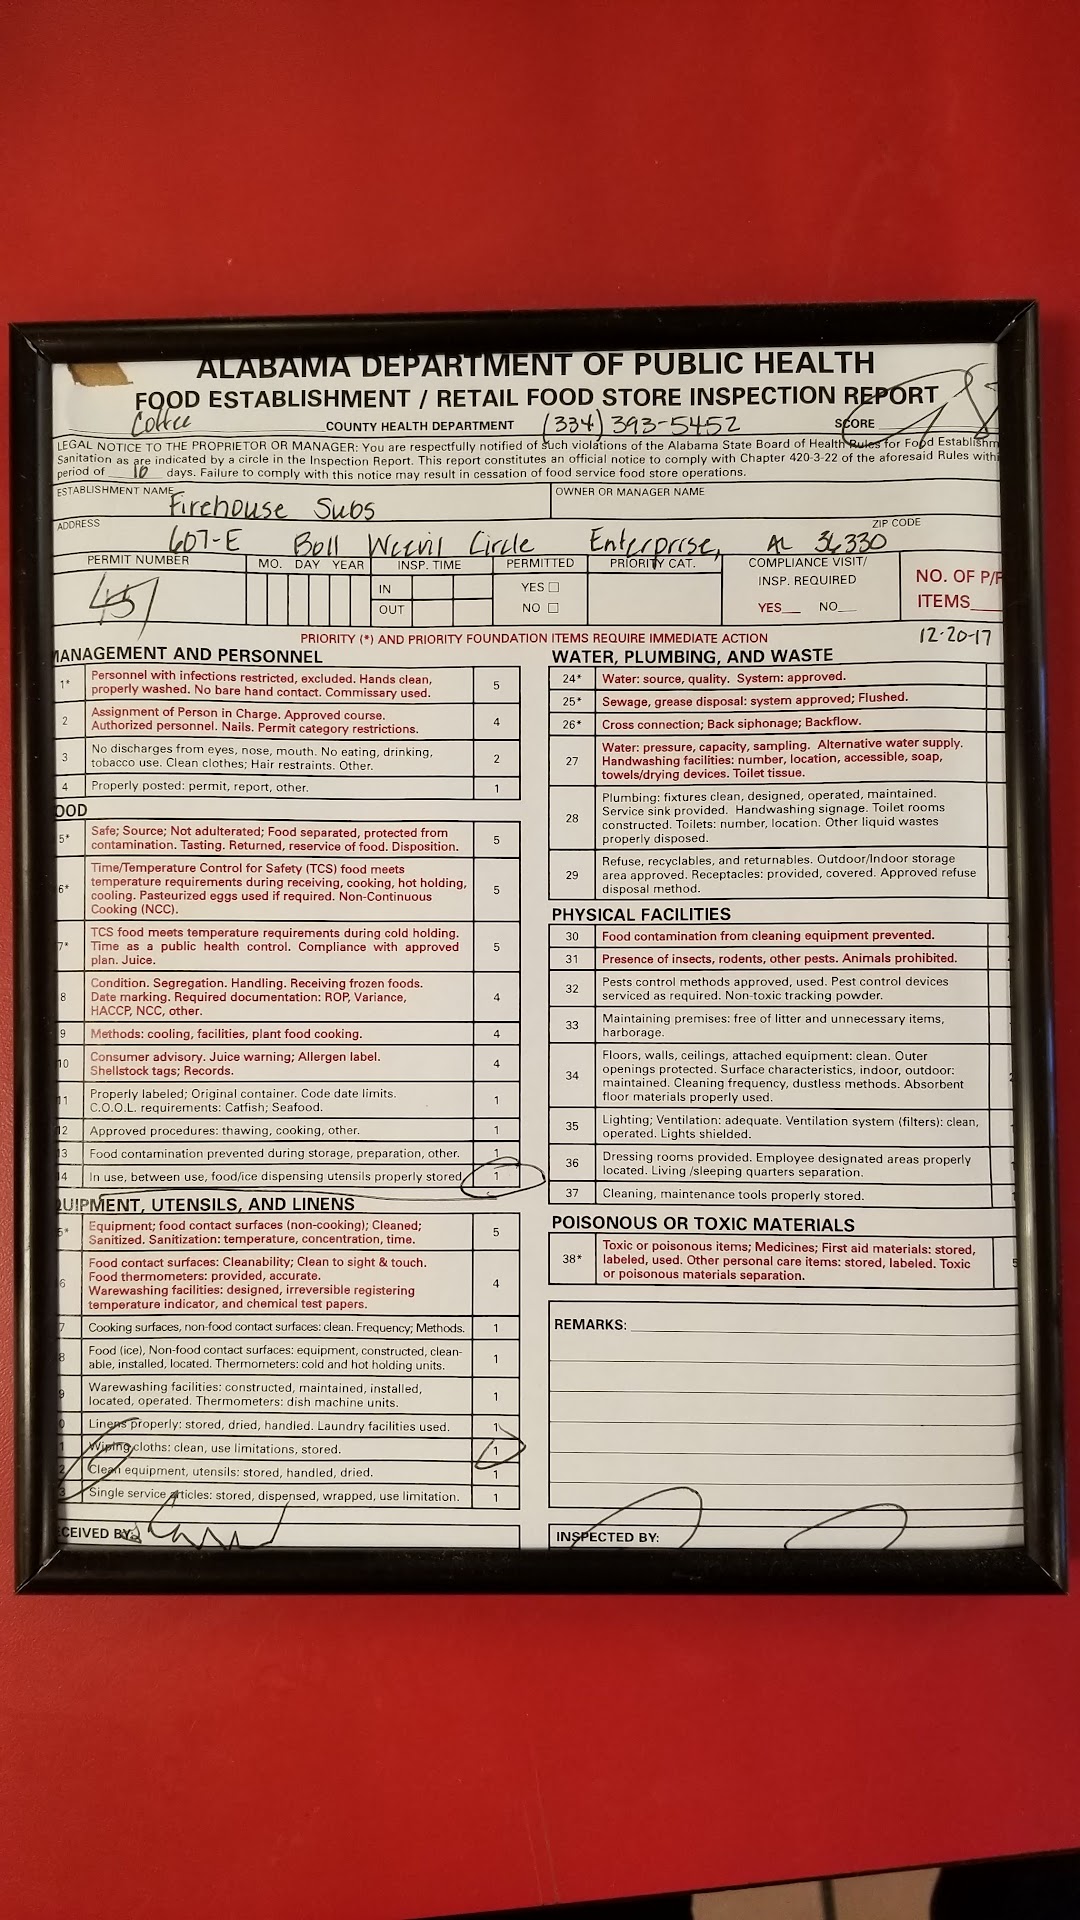 ALABAMA DEPARTMENT OF PUBLIC HEALTH
FOOD ESTABLISHMENT / RETAIL FOOD STORE INSPECTION REPORT
Coffee COUNTY HEALTH DEPARTMENT (334) 393-5452 SCORE 98
LEGAL NOTICE TO THE PROPRIETOR OR MANAGER: You are respectfully notified of such violations of the Alabama State Board of Health Rules for Food Establishm
Sanitation as are indicated by a circle in the Inspection Report. This report constitutes an official notice to comply with Chapter 420-3-22 of the aforesaid Rules with
period of 10 days. Failure to comply with this notice may result in cessation of food service food store operations.
ESTABLISHMENT NAME Firehouse Subs OWNER OR MANAGER NAME
ADDRESS 607-E Boll Weevil Circle Enterprise, AL ZIP CODE 36330
PERMIT NUMBER MO. DAY YEAR INSP. TIME PERMITTED PRIORITY CAT. COMPLIANCE VISIT/
INSP. REQUIRED
IN YES NO. OF P/F
OUT NO YES NO ITEMS
PRIORITY (*) AND PRIORITY FOUNDATION ITEMS REQUIRE IMMEDIATE ACTION 12-20-17
MANAGEMENT AND PERSONNEL
1* Personnel with infections restricted, excluded. Hands clean,
properly washed. No bare hand contact. Commissary used. 5
2 Assignment of Person in Charge. Approved course.
Authorized personnel. Nails. Permit category restrictions. 4
3 No discharges from eyes, nose, mouth. No eating, drinking,
tobacco use. Clean clothes; Hair restraints. Other. 2
4 Properly posted: permit, report, other. 1
OOD
5* Safe; Source; Not adulterated; Food separated, protected from
contamination. Tasting. Returned, reservice of food. Disposition. 5
6* Time/Temperature Control for Safety (TCS) food meets
temperature requirements during receiving, cooking, hot holding,
cooling. Pasteurized eggs used if required. Non-Continuous
Cooking (NCC). 5
7* TCS food meets temperature requirements during cold holding.
Time as a public health control. Compliance with approved
plan. Juice. 5
8 Condition. Segregation. Handling. Receiving frozen foods.
Date marking. Required documentation: ROP, Variance,
HACCP, NCC, other. 4
9 Methods: cooling, facilities, plant food cooking. 4
10 Consumer advisory. Juice warning; Allergen label.
Shellstock tags; Records. 4
11 Properly labeled; Original container. Code date limits.
C.O.O.L. requirements: Catfish; Seafood. 1
12 Approved procedures: thawing, cooking, other. 1
13 Food contamination prevented during storage, preparation, other. 1
14 In use, between use, food/ice dispensing utensils properly stored 1
QUIPMENT, UTENSILS, AND LINENS
5* Equipment; food contact surfaces (non-cooking); Cleaned;
Sanitized. Sanitization: temperature, concentration, time. 5
6 Food contact surfaces: Cleanability; Clean to sight & touch.
Food thermometers: provided, accurate.
Warewashing facilities: designed, irreversible registering
temperature indicator, and chemical test papers. 4
7 Cooking surfaces, non-food contact surfaces: clean. Frequency; Methods. 1
8 Food (ice), Non-food contact surfaces: equipment, constructed, clean-
able, installed, located. Thermometers: cold and hot holding units. 1
9 Warewashing facilities: constructed, maintained, installed,
located, operated. Thermometers: dish machine units. 1
0 Linens properly: stored, dried, handled. Laundry facilities used. 1
1 Wiping cloths: clean, use limitations, stored. 1
2 Clean equipment, utensils: stored, handled, dried. 1
3 Single service articles: stored, dispensed, wrapped, use limitation. 1
CEIVED BY:
WATER, PLUMBING, AND WASTE
24* Water: source, quality. System: approved.
25* Sewage, grease disposal: system approved; Flushed.
26* Cross connection; Back siphonage; Backflow.
27 Water: pressure, capacity, sampling. Alternative water supply.
Handwashing facilities: number, location, accessible, soap,
towels/drying devices. Toilet tissue.
28 Plumbing: fixtures clean, designed, operated, maintained.
Service sink provided. Handwashing signage. Toilet rooms
constructed. Toilets: number, location. Other liquid wastes
properly disposed.
29 Refuse, recyclables, and returnables. Outdoor/Indoor storage
area approved. Receptacles: provided, covered. Approved refuse
disposal method.
PHYSICAL FACILITIES
30 Food contamination from cleaning equipment prevented.
31 Presence of insects, rodents, other pests. Animals prohibited.
32 Pests control methods approved, used. Pest control devices
serviced as required. Non-toxic tracking powder.
33 Maintaining premises: free of litter and unnecessary items,
harborage.
34 Floors, walls, ceilings, attached equipment: clean. Outer
openings protected. Surface characteristics, indoor, outdoor:
maintained. Cleaning frequency, dustless methods. Absorbent
floor materials properly used.
35 Lighting; Ventilation: adequate. Ventilation system (filters): clean,
operated. Lights shielded.
36 Dressing rooms provided. Employee designated areas properly
located. Living /sleeping quarters separation.
37 Cleaning, maintenance tools properly stored.
POISONOUS OR TOXIC MATERIALS
38* Toxic or poisonous items; Medicines; First aid materials: stored,
labeled, used. Other personal care items: stored, labeled. Toxic
or poisonous materials separation. 5
REMARKS:
INSPECTED BY: